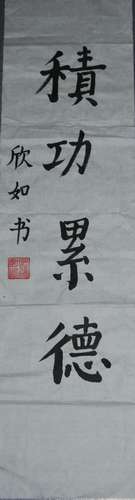 積功累德
欣如书